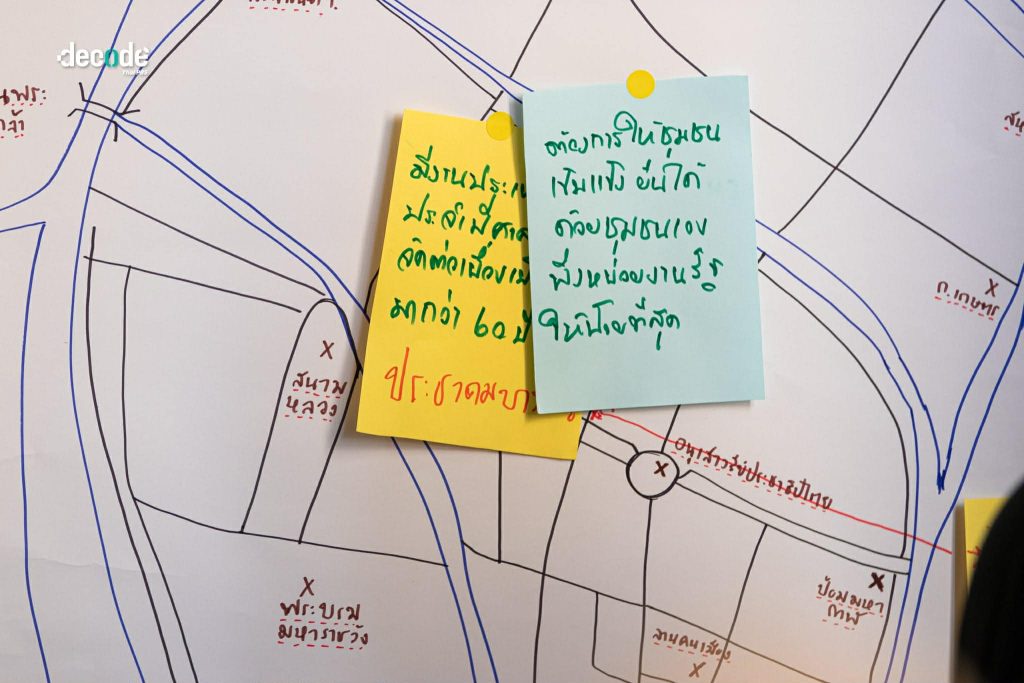 decode
นพระ
มีงานประเ
ประจำปี
จัดต่อเนื่อง
มากว่า 60 ปี
ประชาคมบา
ต้องการให้ชุมชน
เข้มแข็ง ยืนได้
ด้วยชุมชนเอง
พึ่งหน่วยงานรัฐ
ให้น้อยที่สุด
X
ถ.เกษตร
X
สนาม
หลวง
X
อนุเสาวรีย์ประชาธิปไตย
X
พระบรม
มหาราชวัง
X
ป้อมมหา
กาฬ
ลานคนเมือง
X